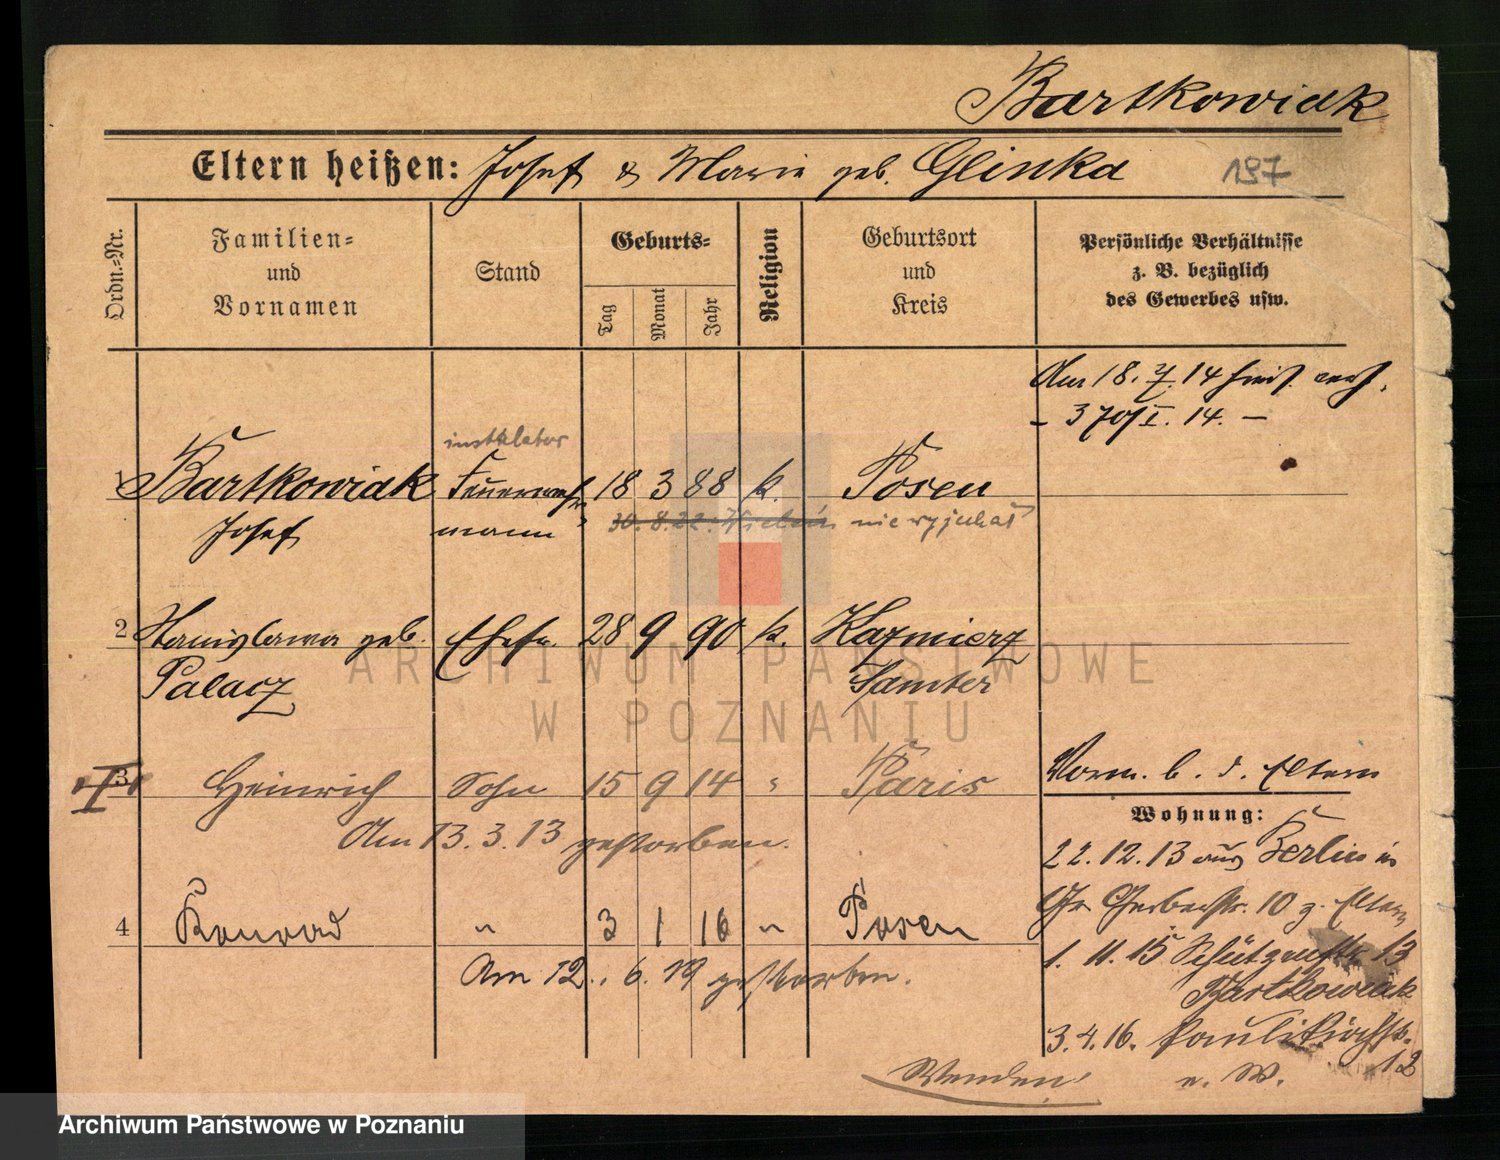 Bartkowiak
Eltern heißen: Josef & Marie geb. Glinka 197
Ordn.-Nr.
Familien-
und
Vornamen
Stand
Geburts-
Tag Monat Jahr
Religion
Geburtsort
und
Kreis
Persönliche Verhältnisse
z. B. bezüglich
des Gewerbes usw.
Am 18. 7. 14
- 370/I. 14. -
instalator
1 Bartkowiak Feuerwehr 18 3 88 k. Posen
Josef mann 30. 8. 22.
2 Stanislawa geb. Ehefr. 28 9 90 k. Kazmierz
Palacz Samter
3 Heinrich Sohn 15 9 14 " Paris
Am 13. 3. 13 gestorben.
Vorm. b. d. Eltern
Wohnung:
22. 12. 13 aus Berlin in
Gr. Gerberstr. 10 z. Eltern
4 Konrad " 3 1 16 " Posen
Am 12. 6. 19 gestorben.
1. 11. 15 Schützenstr. 13
Bartkowiak
3. 4. 16. Paulikirchstr.
12
Wenden! e. W.
ARCHIWUM PAŃSTWOWE
W POZNANIU
Archiwum Państwowe w Poznaniu